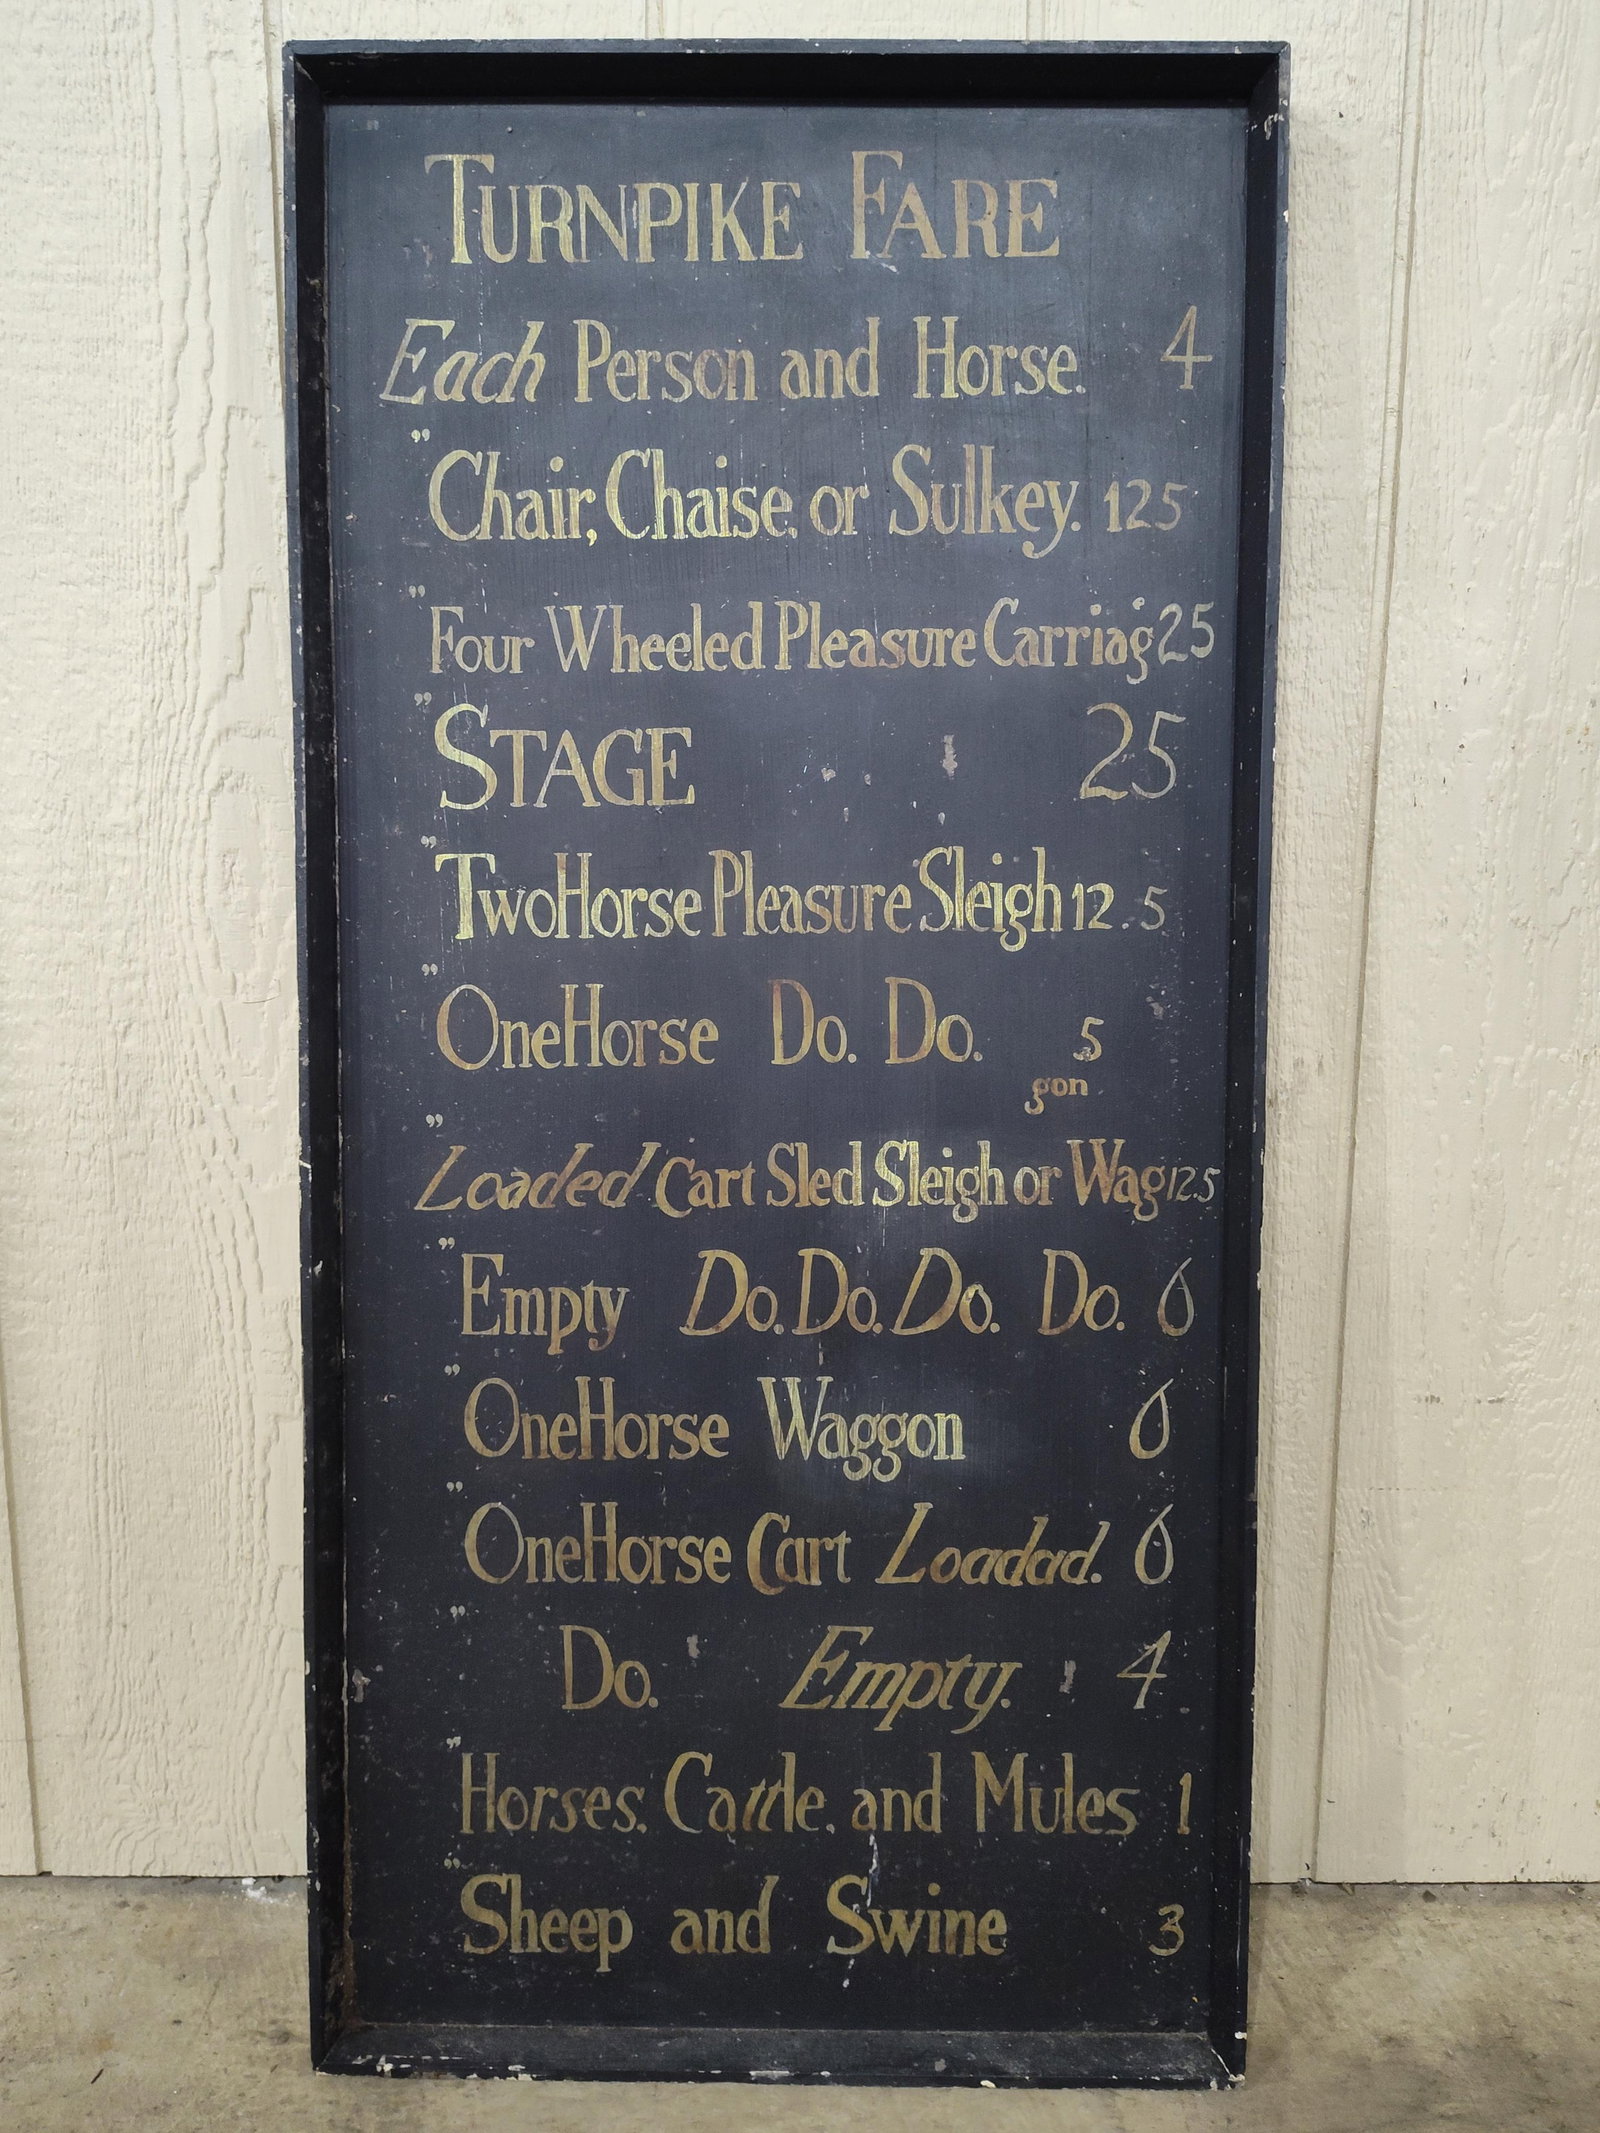 TURNPIKE FARE
Each Person and Horse. 4
" Chair, Chaise, or Sulkey. 125
" Four Wheeled Pleasure Carriag 25
" STAGE 25
" Two Horse Pleasure Sleigh 12.5
" One Horse Do. Do. 5
gon
" Loaded Cart Sled Sleigh or Wag 12.5
" Empty Do. Do. Do. Do. 6
" One Horse Waggon 6
" One Horse Cart Loadad. 6
" Do. Empty. 4
" Horses, Cattle, and Mules 1
" Sheep and Swine 3